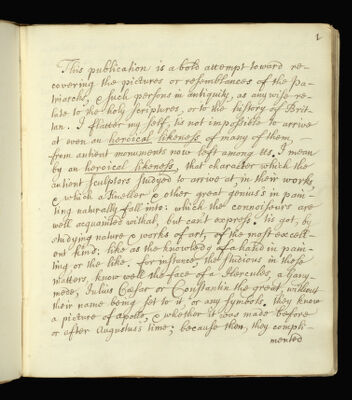 1
This publication is a bold attempt toward re-
covering the pictures or resemblances of the Pa-
triarchs, & such persons in antiquity, as any wise re-
late to the holy scriptures, or to the history of Brit-
tan. I flatter my self, tis not impossible to arrive
at even an heroical likeness of many of them,
from antient monuments now left among us. I mean
by an heroical likeness, that character which the
antient sculptors studyed to arrive at, in their works,
& which a Kneller & other great genius's in pain-
ting naturally fall into: which the connoisours are
well acquainted withal, but can't express. tis got, by
studying nature & works of art, of the most excell-
ent kind: like as the knowledg of a hand in pain-
ting or the like. for instance, the studious in these
matters, know well the face of a Hercules, a Gany-
mede, Julius Cæsar or Constantin the great, without
their name being set to it, or any symbols. they know
a picture of apollo, & whether it was made before
or after Augustus's time; because then, they compli-
mented